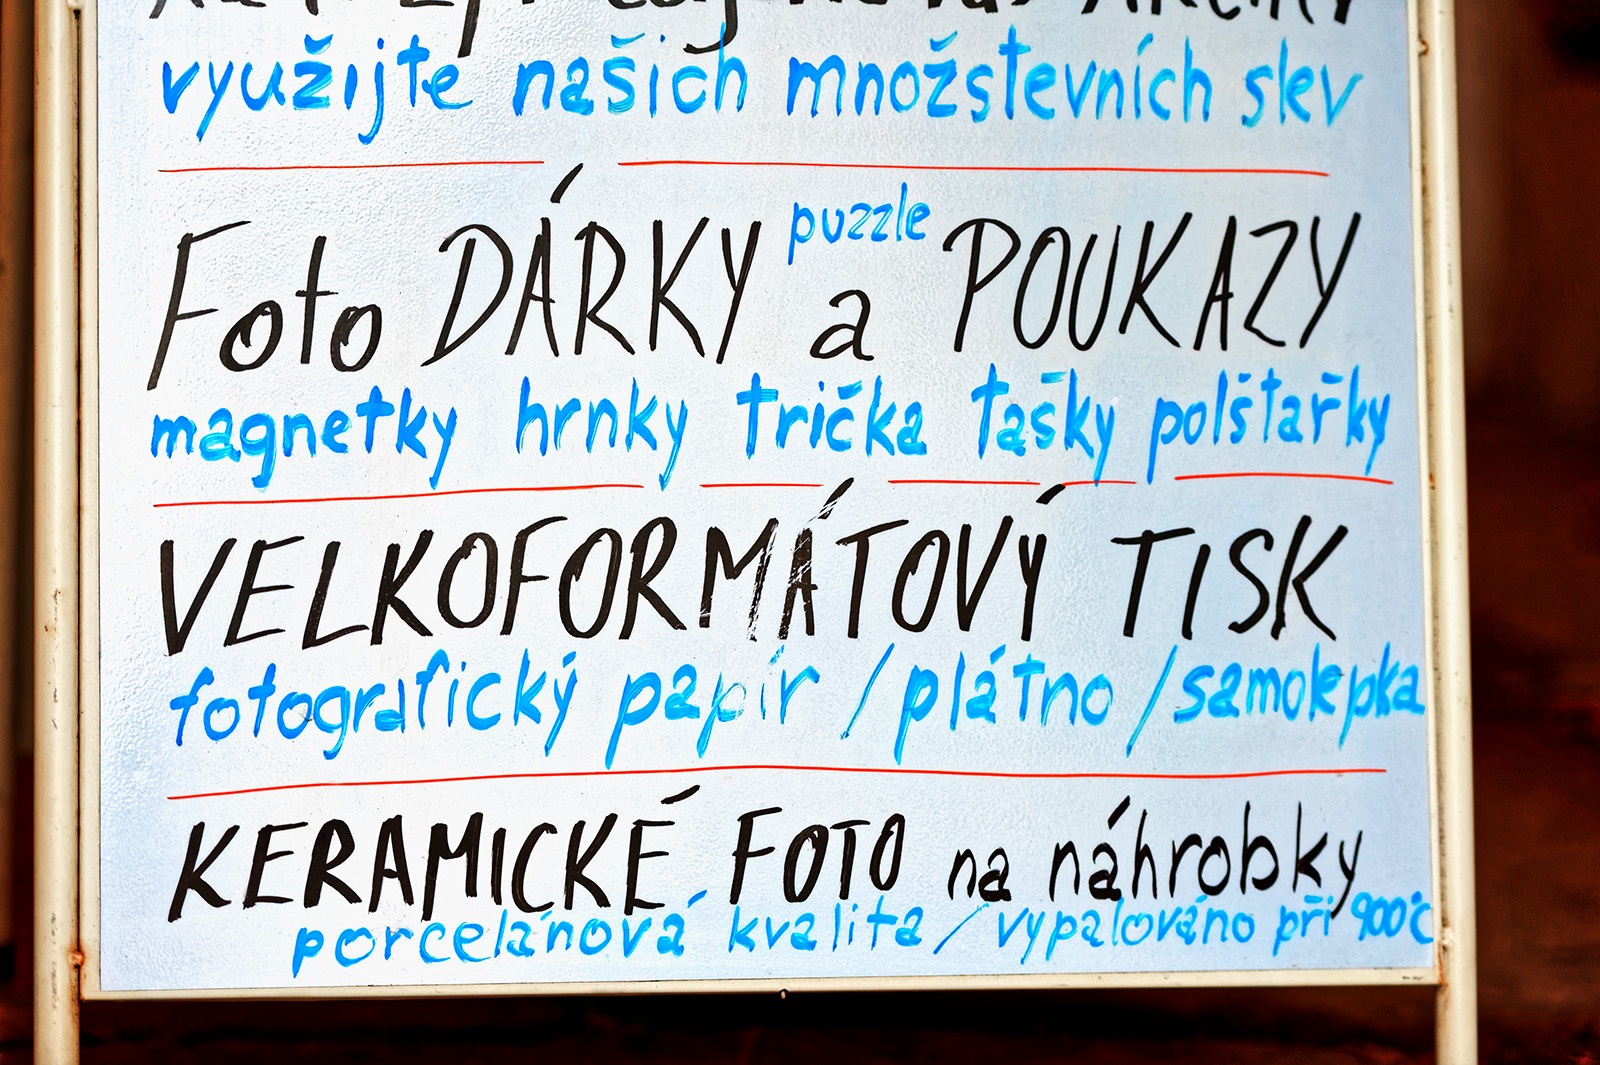 využijte našich množstevních slev
Foto DÁRKY puzzle a POUKAZY
magnetky hrnky trička tašky polštařky
VELKOFORMÁTOVÝ TISK
fotografický papír / plátno / samolepka
KERAMICKÉ FOTO na náhrobky
porcelánová kvalita / vypalováno při 900°C